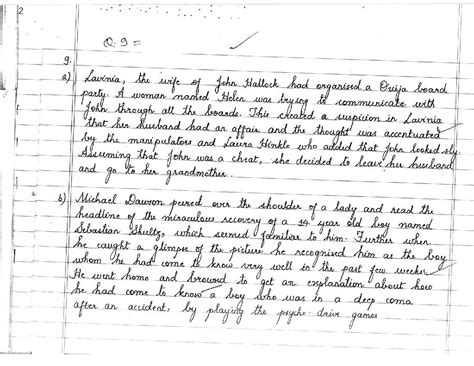 2
Q.9 =
9.
a) Lavinia, the wife of John Hallock had organised a Ouija board
party. A woman named Helen was trying to communicate with
John through all the boards. This created a suspicion in Lavinia
that her husband had an affair and the thought was accentuated
by the manipulators and Laura Hinkle who added that John looked sly.
Assuming that John was a cheat, she decided to leave her husband
and go to her grandmother.
b) Michael Dawson peered over the shoulder of a lady and read the
headline of the miraculous recovery of a 14 year old boy named
Sebastian Shultz, which seemed familiar to him. Further when
he caught a glimpse of the picture he recognised him as the boy
whom he had come to know very well in the past few weeks.
He went home and browsed to get an explanation about how
he had come to know a boy who was in a deep coma
after an accident, by playing the psycho-drive games